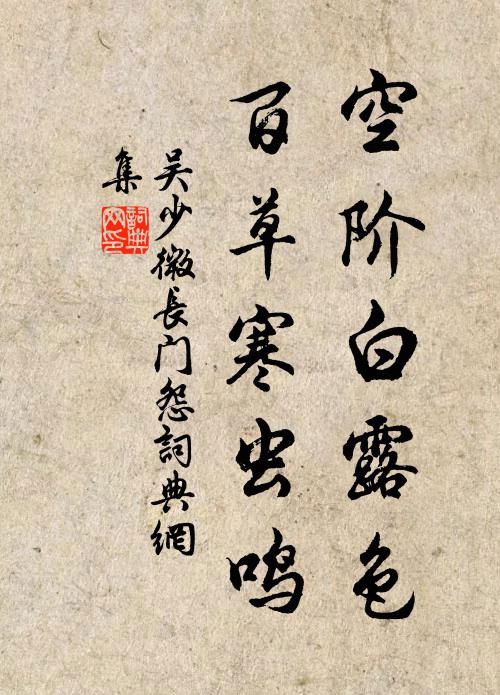 空阶白露色
百草寒虫鸣
吴少微長门怨詞典網
集
詞典网印